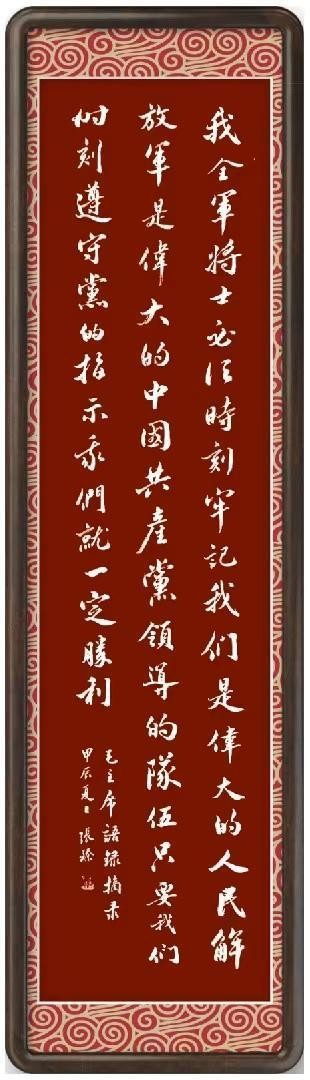 我全軍將士必須時刻牢記我们是偉大的人民解
放軍是偉大的中國共產黨領導的隊伍只要我们
时刻遵守黨的指示我們就一定勝利
毛主席語錄摘录
甲辰夏 張